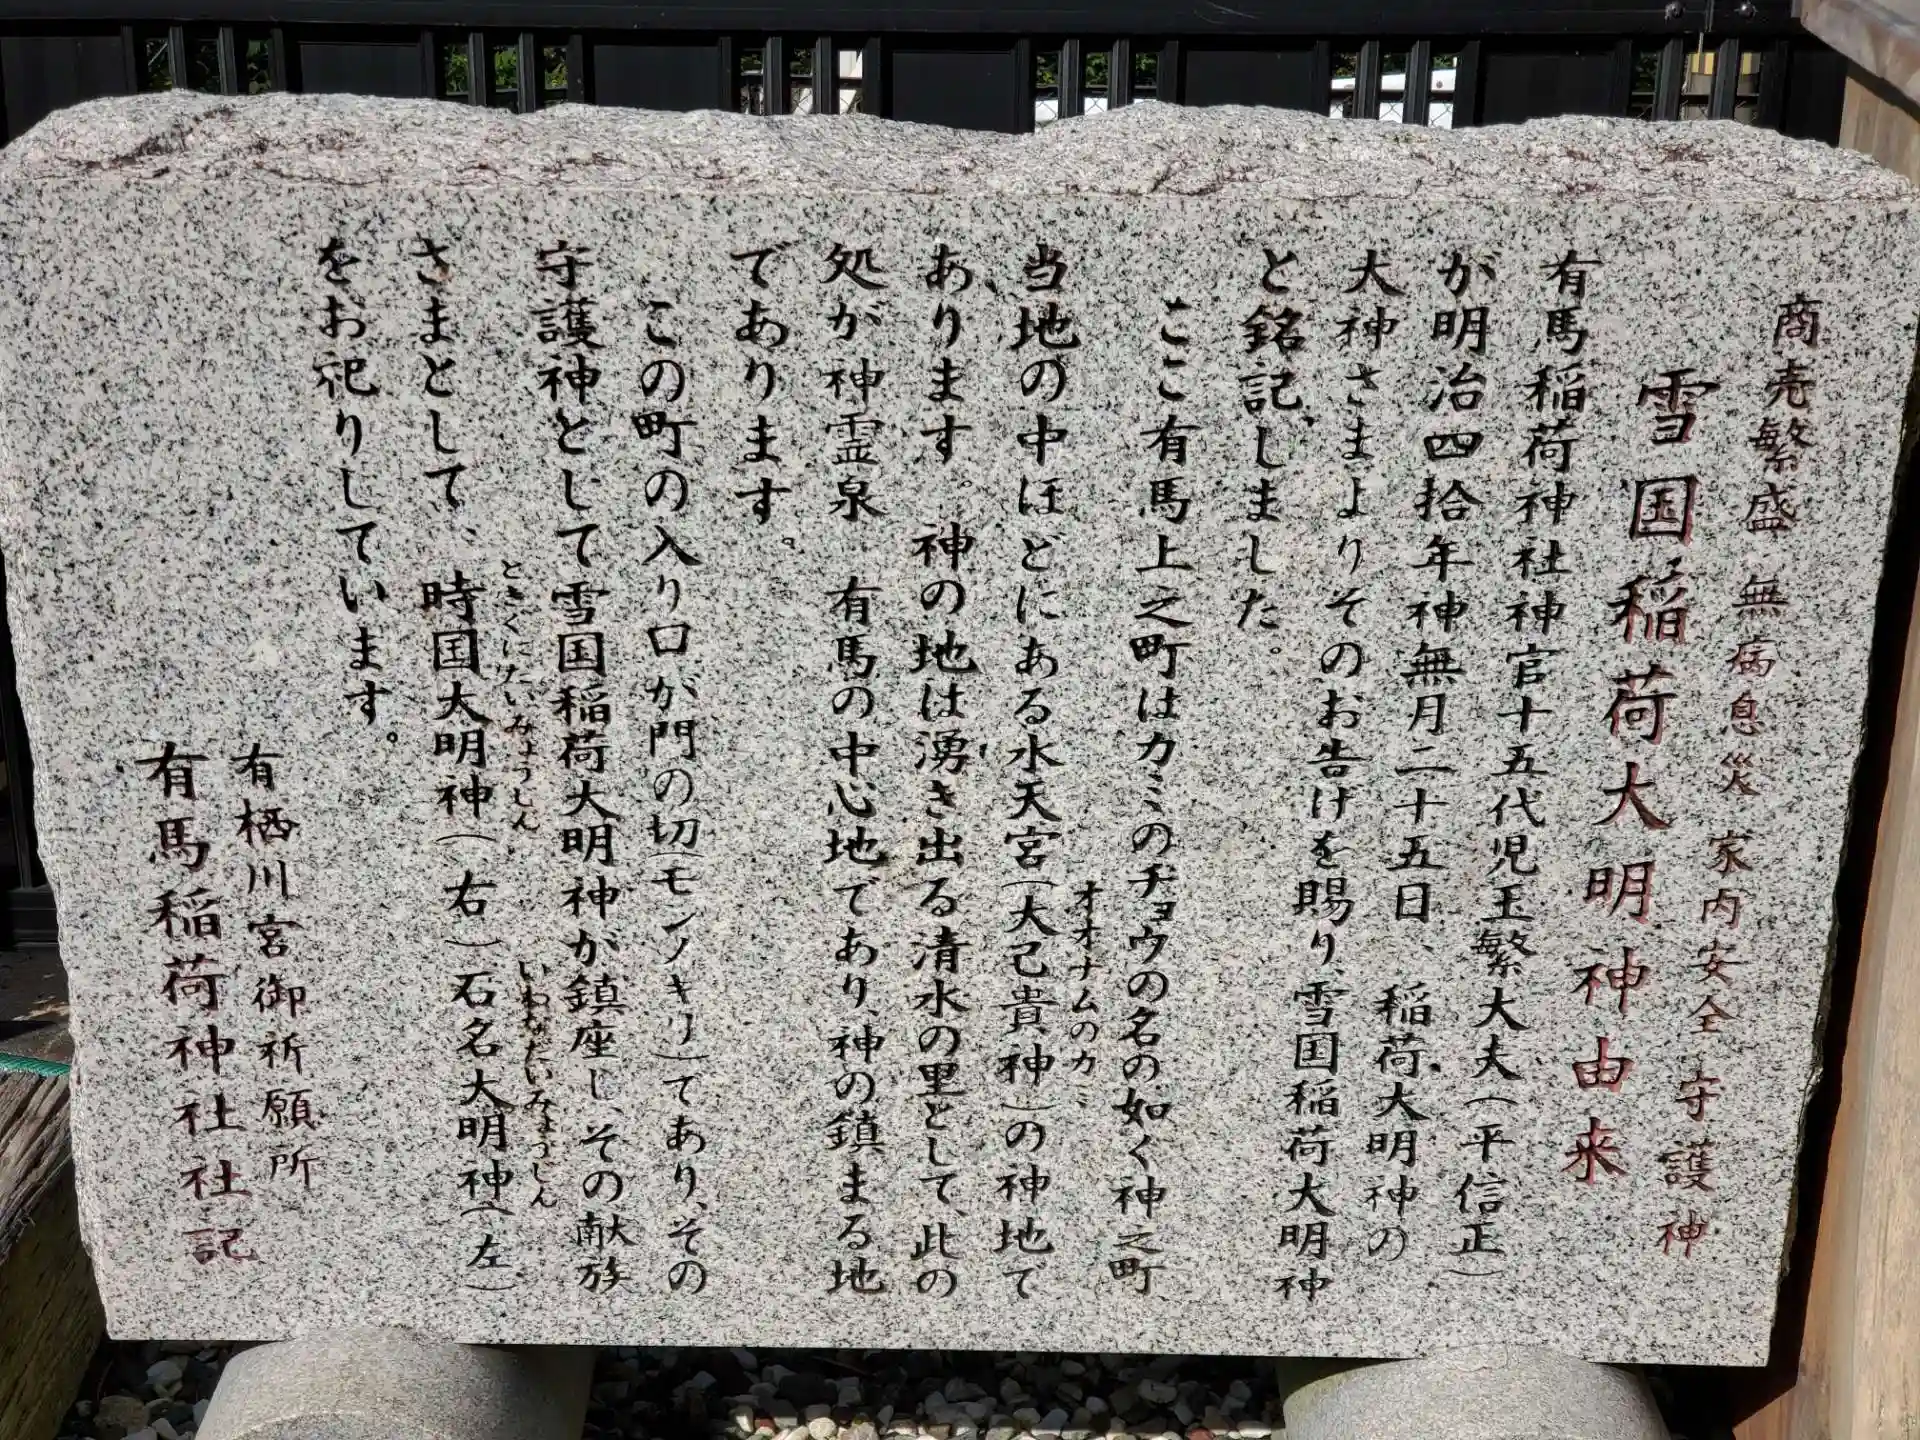 商売繁盛 無病息災 家内安全 守護神
雪国稲荷大明神由来
有馬稲荷神社神官十五代児玉繁大夫(平信正)
が明治四拾年神無月二十五日、稲荷大明神の
大神さまよりそのお告げを賜り、雪国稲荷大明神
と銘記しました。
ここ有馬上之町はカミのチョウの名の如く神之町
オオナムのカミ
当地の中ほどにある水天宮(大己貴神)の神地て
あります。神の地は湧き出る清水の里として、此の
処が神霊泉 有馬の中心地であり、神の鎮まる地
であります。
この町の入り口が門の切(モンノキリ)てあり、その
守護神として雪国稲荷大明神が鎮座し、その献族
ときくにたいみょうしん いわなたいみょうじん
さまとして、時国大明神(右)石名大明神(左)
をお祀りしています。
有栖川宮御祈願所
有馬稲荷神社社記